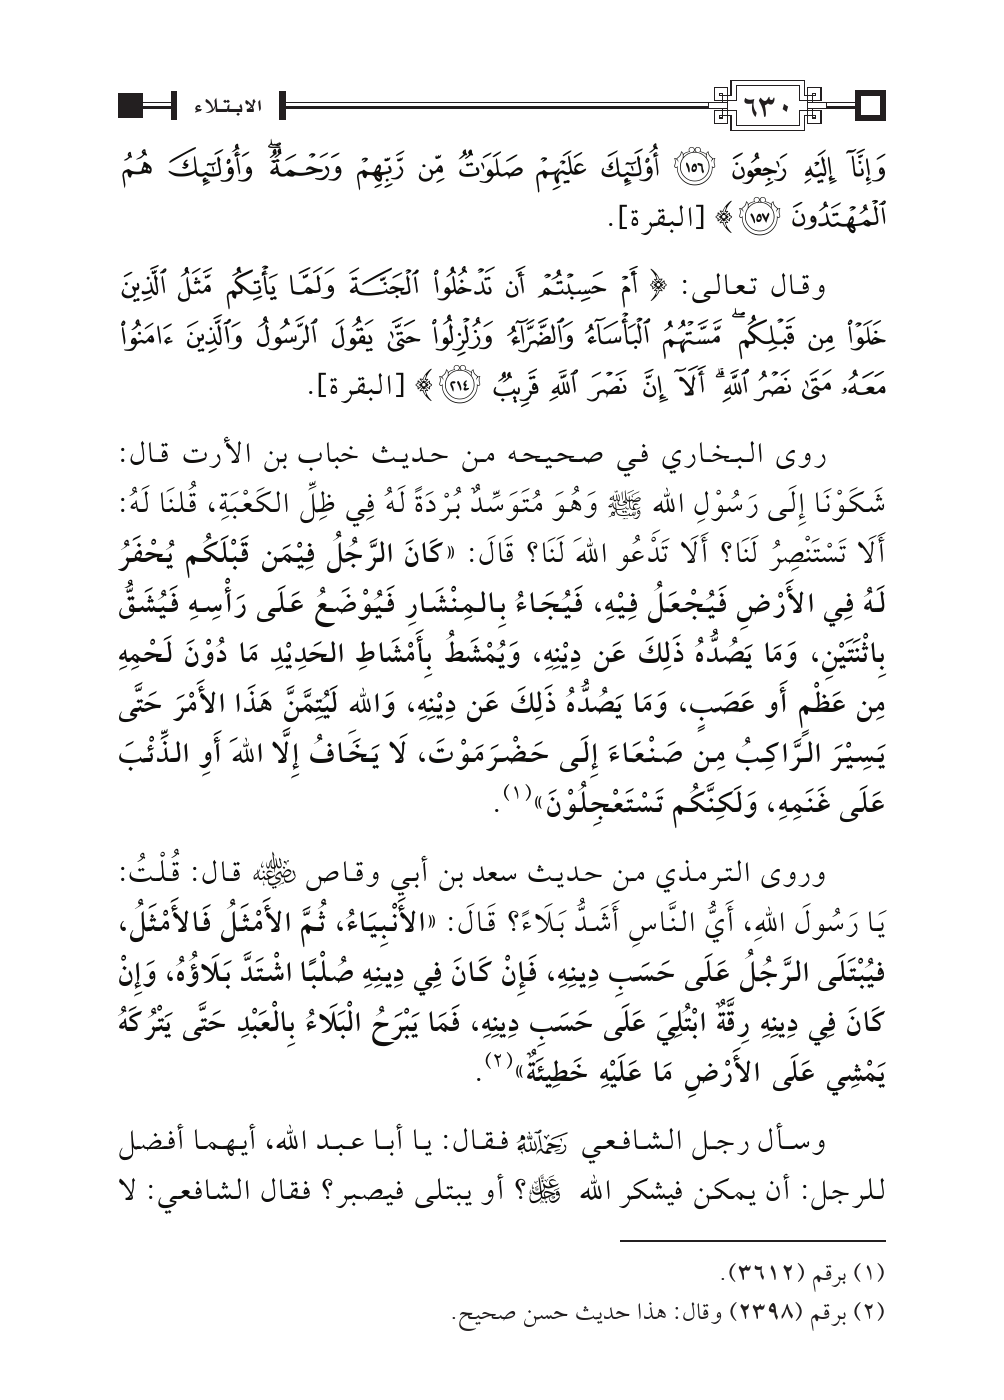 ٦٣٠ الابتلاء
وَإِنَّآ إِلَيْهِ رَٰجِعُونَ ١٥٦ أُو۟لَٰٓئِكَ عَلَيْهِمْ صَلَوَٰتٌ مِّن رَّبِّهِمْ وَرَحْمَةٌ ۖ وَأُو۟لَٰٓئِكَ هُمُ
ٱلْمُهْتَدُونَ ١٥٧ ﴾ [البقرة].
وقال تعالى: ﴿ أَمْ حَسِبْتُمْ أَن تَدْخُلُوا۟ ٱلْجَنَّةَ وَلَمَّا يَأْتِكُم مَّثَلُ ٱلَّذِينَ
خَلَوْا۟ مِن قَبْلِكُم ۖ مَّسَّتْهُمُ ٱلْبَأْسَآءُ وَٱلضَّرَّآءُ وَزُلْزِلُوا۟ حَتَّىٰ يَقُولَ ٱلرَّسُولُ وَٱلَّذِينَ ءَامَنُوا۟
مَعَهُۥ مَتَىٰ نَصْرُ ٱللَّهِ ۗ أَلَآ إِنَّ نَصْرَ ٱللَّهِ قَرِيبٌ ٢١٤ ﴾ [البقرة].
روى البخاري في صحيحه من حديث خباب بن الأرت قال:
شَكَوْنَا إِلَى رَسُوْلِ الله ﷺ وَهُوَ مُتَوَسِّدٌ بُرْدَةً لَهُ فِي ظِلِّ الكَعْبَةِ، قُلنَا لَهُ:
أَلَا تَسْتَنْصِرُ لَنَا؟ أَلَا تَدْعُو اللهَ لَنَا؟ قَالَ: «كَانَ الرَّجُلُ فِيْمَن قَبْلَكُم يُحْفَرُ
لَهُ فِي الأَرْضِ فَيُجْعَلُ فِيْهِ، فَيُجَاءُ بِالمِنْشَارِ فَيُوْضَعُ عَلَى رَأْسِهِ فَيُشَقُّ
بِاثْنَتَيْنِ، وَمَا يَصُدُّهُ ذَلِكَ عَن دِيْنِهِ، وَيُمْشَطُ بِأَمْشَاطِ الحَدِيْدِ مَا دُوْنَ لَحْمِهِ
مِن عَظْمٍ أَو عَصَبٍ، وَمَا يَصُدُّهُ ذَلِكَ عَن دِيْنِهِ، وَالله لَيُتِمَّنَّ هَذَا الأَمْرَ حَتَّى
يَسِيْرَ الرَّاكِبُ مِن صَنْعَاءَ إِلَى حَضْرَمَوْتَ، لَا يَخَافُ إِلَّا اللهَ أَوِ الذِّئْبَ
عَلَى غَنَمِهِ، وَلَكِنَّكُم تَسْتَعْجِلُوْنَ»(١).
وروى الترمذي من حديث سعد بن أبي وقاص رضي الله عنه قال: قُلْتُ:
يَا رَسُولَ اللهِ، أَيُّ النَّاسِ أَشَدُّ بَلَاءً؟ قَالَ: «الأَنْبِيَاءُ، ثُمَّ الأَمْثَلُ فَالأَمْثَلُ،
فيُبْتَلَى الرَّجُلُ عَلَى حَسَبِ دِينِهِ، فَإِنْ كَانَ فِي دِينِهِ صُلْبًا اشْتَدَّ بَلَاؤُهُ، وَإِنْ
كَانَ فِي دِينِهِ رِقَّةٌ ابْتُلِيَ عَلَى حَسَبِ دِينِهِ، فَمَا يَبْرَحُ الْبَلَاءُ بِالْعَبْدِ حَتَّى يَتْرُكَهُ
يَمْشِي عَلَى الأَرْضِ مَا عَلَيْهِ خَطِيئَةٌ»(٢).
وسأل رجل الشافعي رحمه الله فقال: يا أبا عبد الله، أيهما أفضل
للرجل: أن يمكن فيشكر الله عز وجل؟ أو يبتلى فيصبر؟ فقال الشافعي: لا
(١) برقم (٣٦١٢).
(٢) برقم (٢٣٩٨) وقال: هذا حديث حسن صحيح.